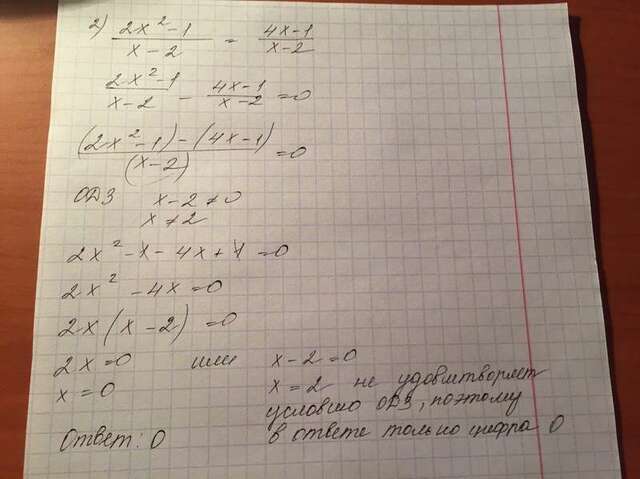 2) (2x² - 1)/(x - 2) = (4x-1)/(x-2)
(2x² - 1)/(x - 2) - (4x-1)/(x-2) = 0
((2x² - 1) - (4x - 1))/(x - 2) = 0
ОДЗ x - 2 ≠ 0
x ≠ 2
2x² - 1 - 4x + 1 = 0
2x² - 4x = 0
2x (x - 2) = 0
2x = 0 или x - 2 = 0
x = 0 x = 2 не удовлитворяет
условию ОДЗ, поэтому
Ответ: 0 в ответе только цифра 0